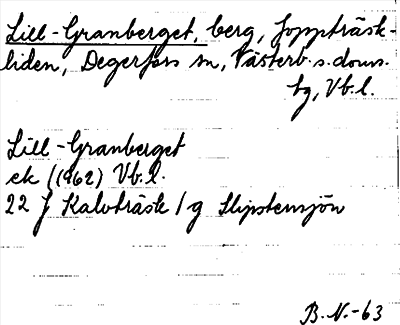 Lill-Granberget, berg, Joppträsk-
liden, Degerfors sn, Västerb.s.doms.
tg, Vb.l.
Lill-Granberget
ek (1962) Vb.l.
22 J Kalvträsk / g Slipstensjön
B.N.-63